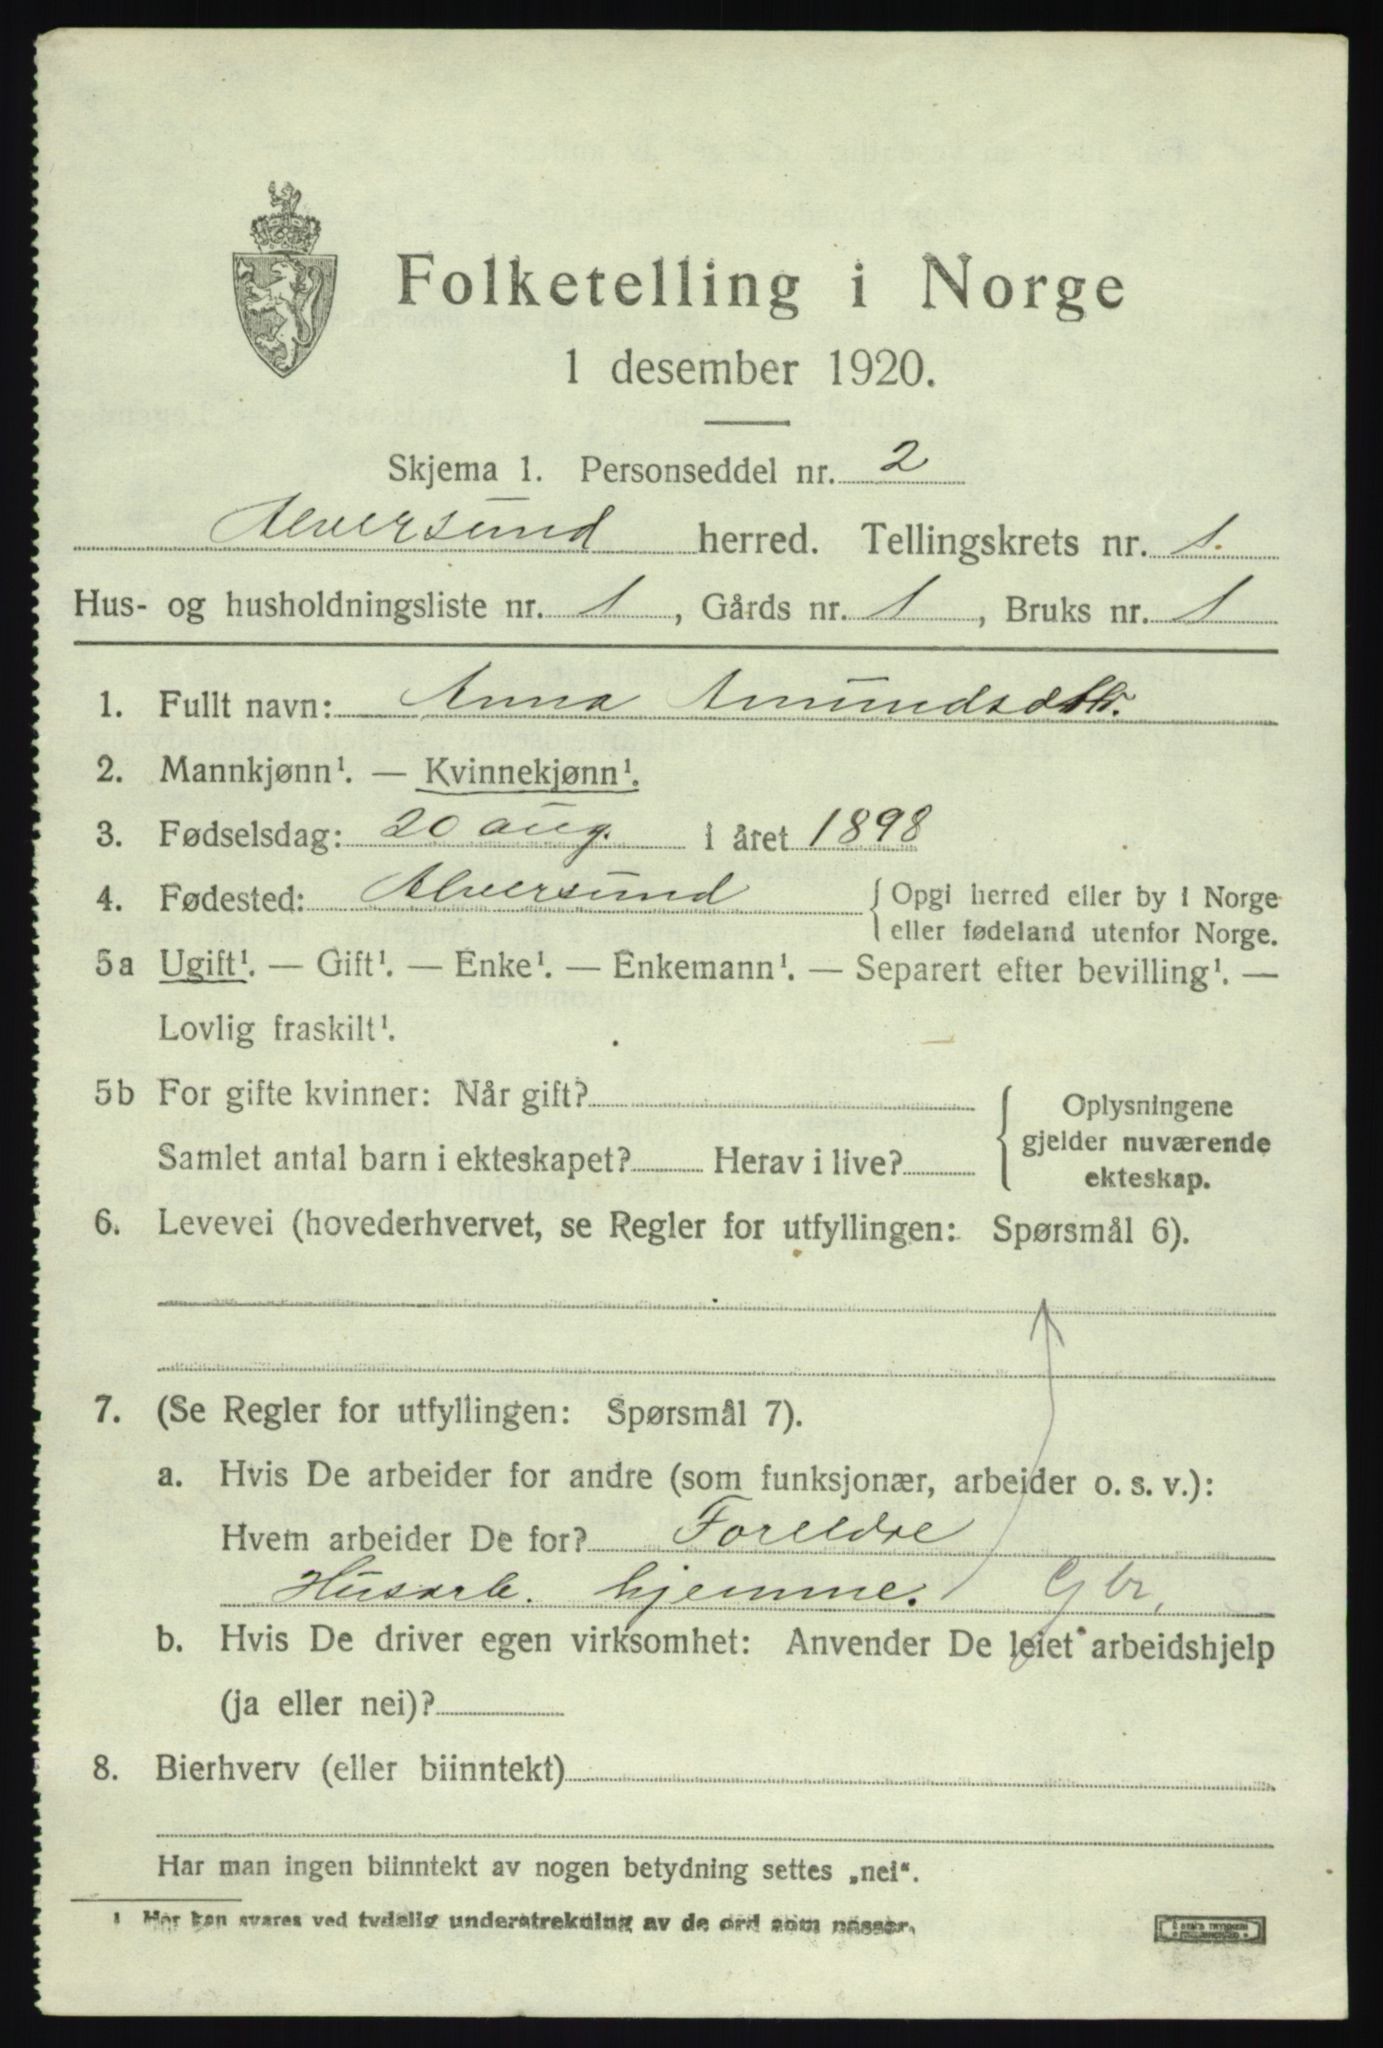 Folketelling i Norge
1 desember 1920.
Skjema 1. Personseddel nr. 2
Alversund herred. Tellingskrets nr. 1.
Hus- og husholdningsliste nr. 1, Gårds nr. 1, Bruks nr. 1
1. Fullt navn: Anna Amundsdttr.
2. Mannkjønn¹. — Kvinnekjønn¹.
3. Fødselsdag: 20 aug. i året 1898
4. Fødested: Alversund { Opgi herred eller by i Norge
eller fødeland utenfor Norge.
5a Ugift¹. — Gift¹. — Enke¹. — Enkemann¹. — Separert efter bevilling¹. —
Lovlig fraskilt¹.
5b For gifte kvinner: Når gift?
Oplysningene
gjelder nuværende
ekteskap.
Samlet antal barn i ekteskapet? Herav i live?
6. Levevei (hovederhvervet, se Regler for utfyllingen: Spørsmål 6).
7. (Se Regler for utfyllingen: Spørsmål 7).
a. Hvis De arbeider for andre (som funksjonær, arbeider o. s. v.):
Hvem arbeider De for? Foreldre
Husarb. hjemme. Gbr.
b. Hvis De driver egen virksomhet: Anvender De leiet arbeidshjelp
(ja eller nei)?
8. Bierhverv (eller biinntekt)
Har man ingen biinntekt av nogen betydning settes „nei“.
1 Her kan svares ved tydelig understrekning av de ord som passer.